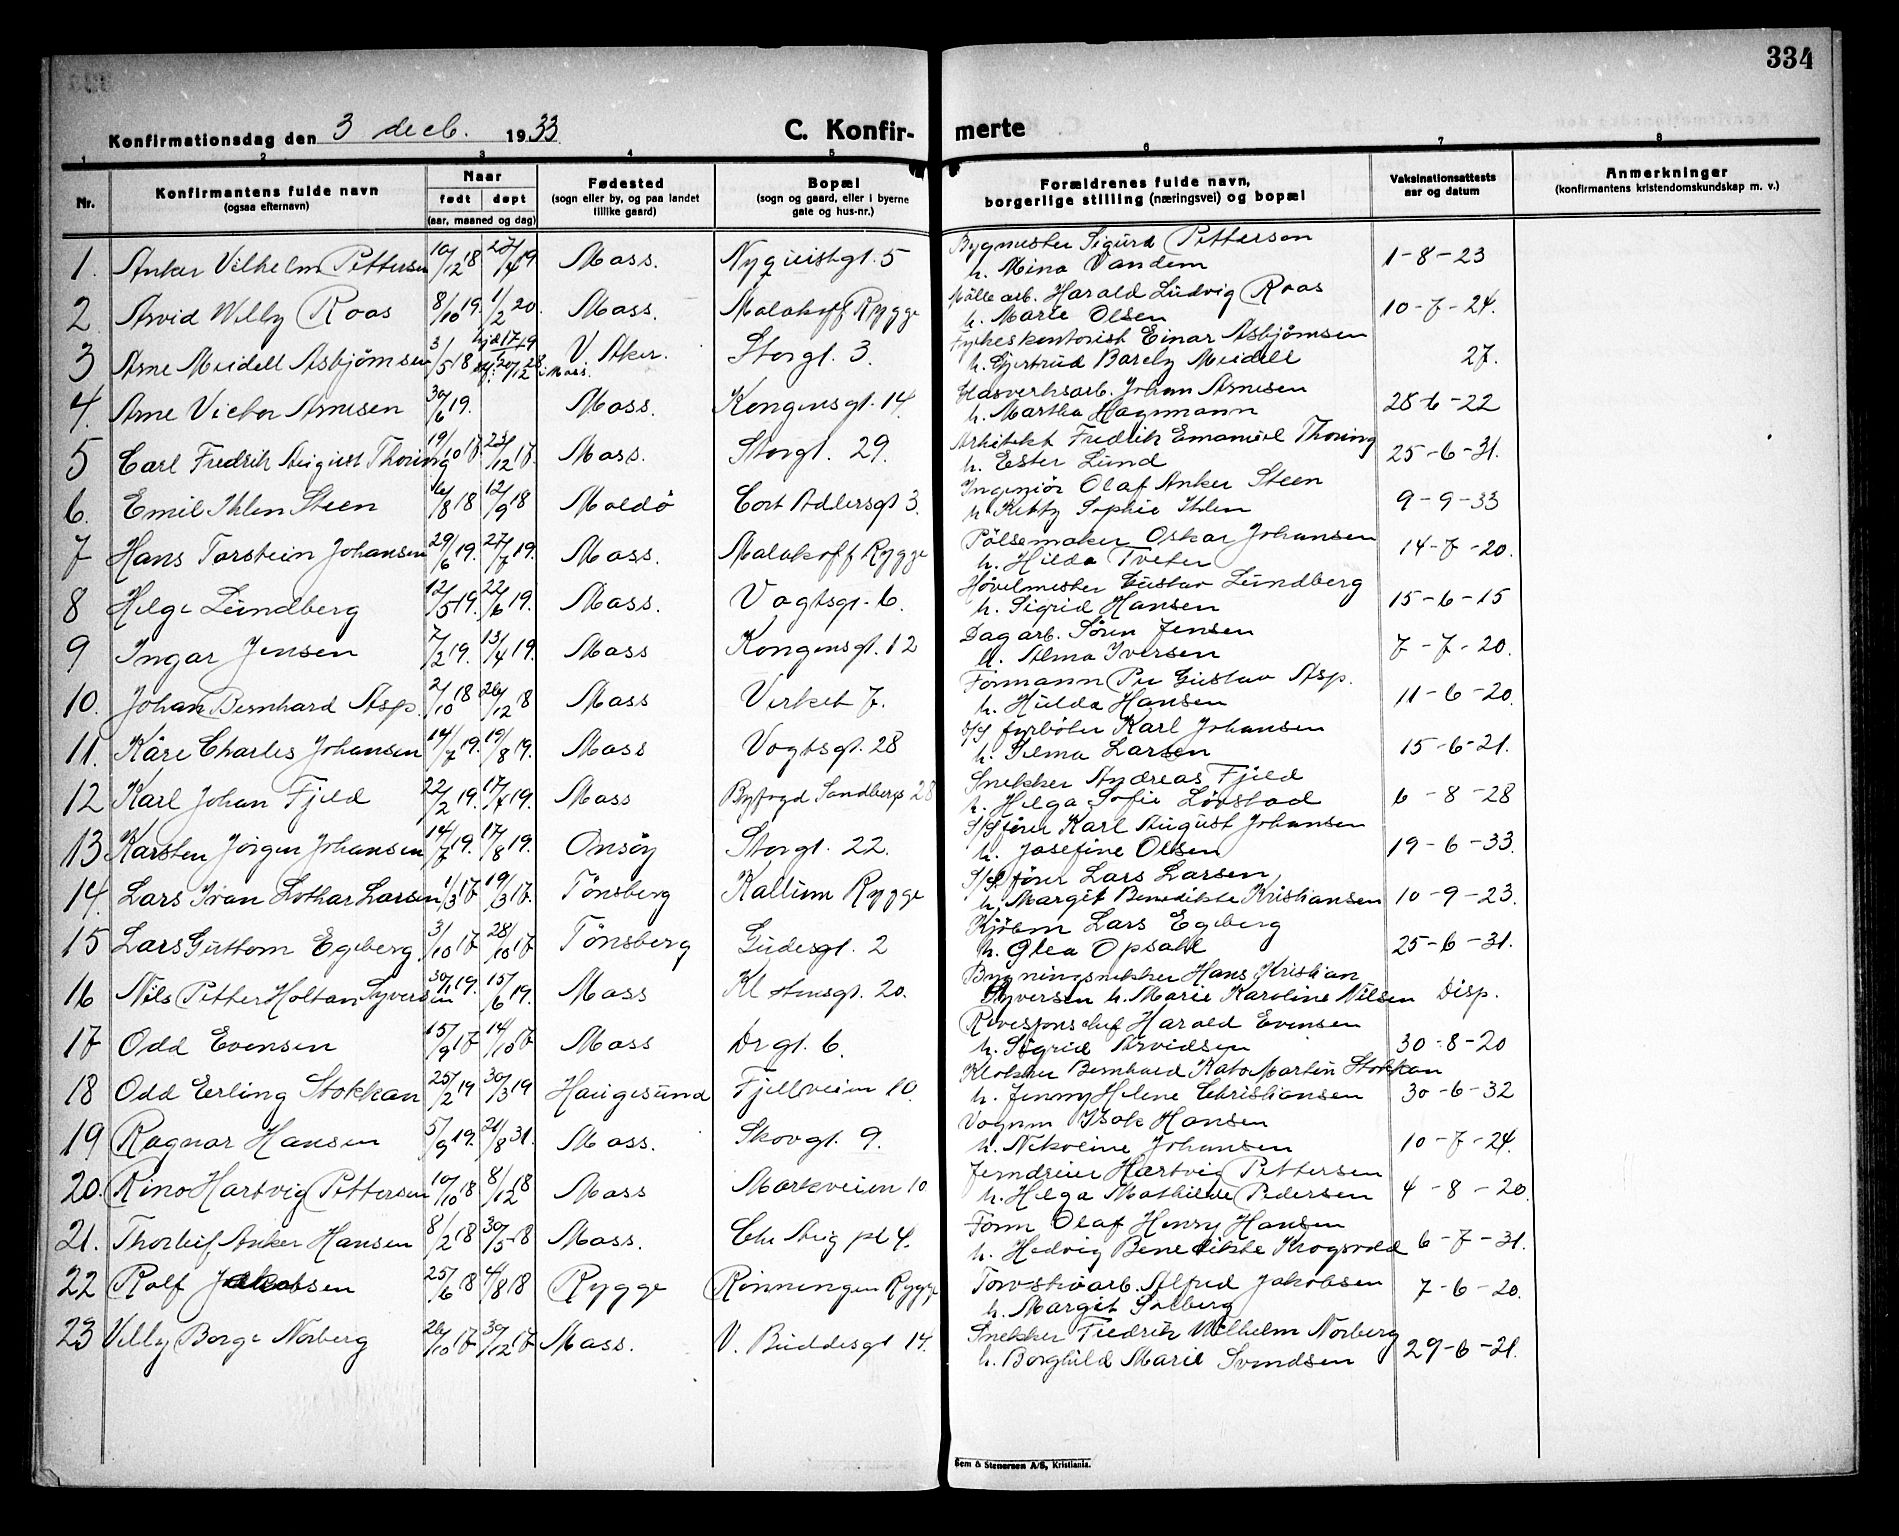 334
Konfirmationsdag den 3 decb. 1933
C. Konfir- merte
1 2 3 4 5 6 7 8
Nr. Konfirmantens fulde navn (ogsaa efternavn) Naar født døpt (aar, maaned og dag) Fødested (sogn eller by, og paa landet tillike gaard) Bopæl (sogn og gaard, eller i byerne gate og hus-nr.) Forældrenes fulde navn, borgerlige stilling (næringsvei) og bopæl Vaksinationsattests aar og datum Anmerkninger (konfirmantens kristendomskundskap m. v.)
1. Anker Vilhelm Pettersen 10/12 18 27/4 19 Moss. Nyquistgt. 5 Bygmester Sigurd Pettersen
h. Mina Vandem 1-8-23
2. Arvid Willy Roos 8/10 19. 1/2 20. Moss. Malakoff Rygge Mölle arb. Harald Ludvig Roos
h. Marie Olsen 10-7-24.
3 Arne Meidell Asbjörnsen 3/5 18 V. Aker. Storgt. 3. Fyrkeskontorist Einar Asbjörnsen
h. Gjertrud Barely Meidell 27.
4. Arne Victor Arnesen 30/6 19. Moss. Kongensgt. 14. Glasverksarb. Johan Arnesen
h. Martha Hagemann 28-6-22
5 Carl Fredrik August Thoring 19/10 17. 23/12 17. Moss. Storgt. 29. Arkitekt Fredrik Emanuel Thoring
h. Ester Lund 25-6-31.
6. Emil Ihlen Steen 16/8 18 12/9 18 Moldö Cort Adlersgt 3. Ingeniör Olaf Anker Steen
h. Ketty Sophie Ihlen 9-9-33
7 Hans Torstein Johansen 29/6 19. 27/7 19. Moss. Malakoff Rygge Pölsemaker Oskar Johansen
h. Hilda Tveter 14-7-20.
8 Helge Lundberg 12/5 19. 22/6 19. Moss. Vogtsgt. 6. Hövelmester Gustav Lundberg
h. Sigrid Hansen 15-6-15
9 Ingar Jensen 7/2 19. 13/4 19. Moss Kongensgt. 12 Dagarb. Sören Jensen
h. Alma Iversen 7-7-20.
10. Johan Bernhard Asp. 2/10 18 26/12 18 Moss Verket 7. Formann Per Gustav Asp.
h. Hulda Hansen 11-6-20
11. Kåre Charles Johansen 14/7 19. 19/8 19. Moss Vogtsgt. 28 S/S fyrböter Karl Johansen
h. Selma Larsen 15-6-21.
12 Karl Johan Fjeld 22/2 19. 17/4 19. Moss Byfogd Sandbergs 28 Snekker Andreas Fjeld
h. Helga Sofie Lövstad 6-8-28
13 Karsten Jörgen Johansen 14/7 19. 17/8 19. Onsöy Storgt. 22. S/S förer Karl August Johansen
h. Josefine Olsen 19-6-33.
14. Lars Ivan Lothar Larsen 1/3 17. 19/3 17. Tönsberg Kallum Rygge S/S förer Lars Larsen
h. Margit Benedikte Kristiansen 10-9-23.
15 Lars Guttorm Egeberg. 3/10 17 28/10 17 Tönsberg Gudesgt. 2 Kjöbm Lars Egeberg
h. Glea Opsahl 25-6-31.
16 Nils Petter Holtan Syversen 30/1 19. 15/6 19. Moss Kl 20. Bygningsnekker Hans Kristian
Syversen h. Marie Karoline Nilsen Disp.
17 Odd Evensen 15/9 17 14/10 17 Moss Drgt. 6. Harald Evensen
h. Sigrid Arvidsen 30-8-20
18 Odd Erling Stokkan 25/2 19 30/3 19 Haugesund Fjellveien 10. Klokker Bernhard Kato Martin Stokkan
h. Jenny Helene Christiansen 30-6-32
19 Ragnar Hansen 5/9 19. 21/8 31. Moss. Skovgt. 9. Vognm Isak Hansen
h. Nikoline Johansen 10-7-24.
20. Rino Hartvig Pettersen 10/10 18 8/12 18 Moss Markveien 10 Jerndreier Hartvig Pettersen
h. Helga Mathilde Pedersen 4-8-20.
21. Thorleif Anker Hansen 8/2 18 30/5 18 Moss. Chr Aug pl 4. Form Olaf Henry Hansen
h. Hedvig Benedikte Krogsvold 6-7-31.
22 Rolf Jakobsen 25/6 18 4/8 18 Rygge Rönningen Rygge Alfred Jakobsen
h. Margit Solberg 7-6-20.
23 Villy Borge Norberg 26/10 17 30/12 17 Moss. V. Buddesgt 14. Snekker Fredrik Wilhelm Norberg
h. Borghild Marie Svendsen 29-6-21.
Sem & Stenersen A/S, Kristiania.